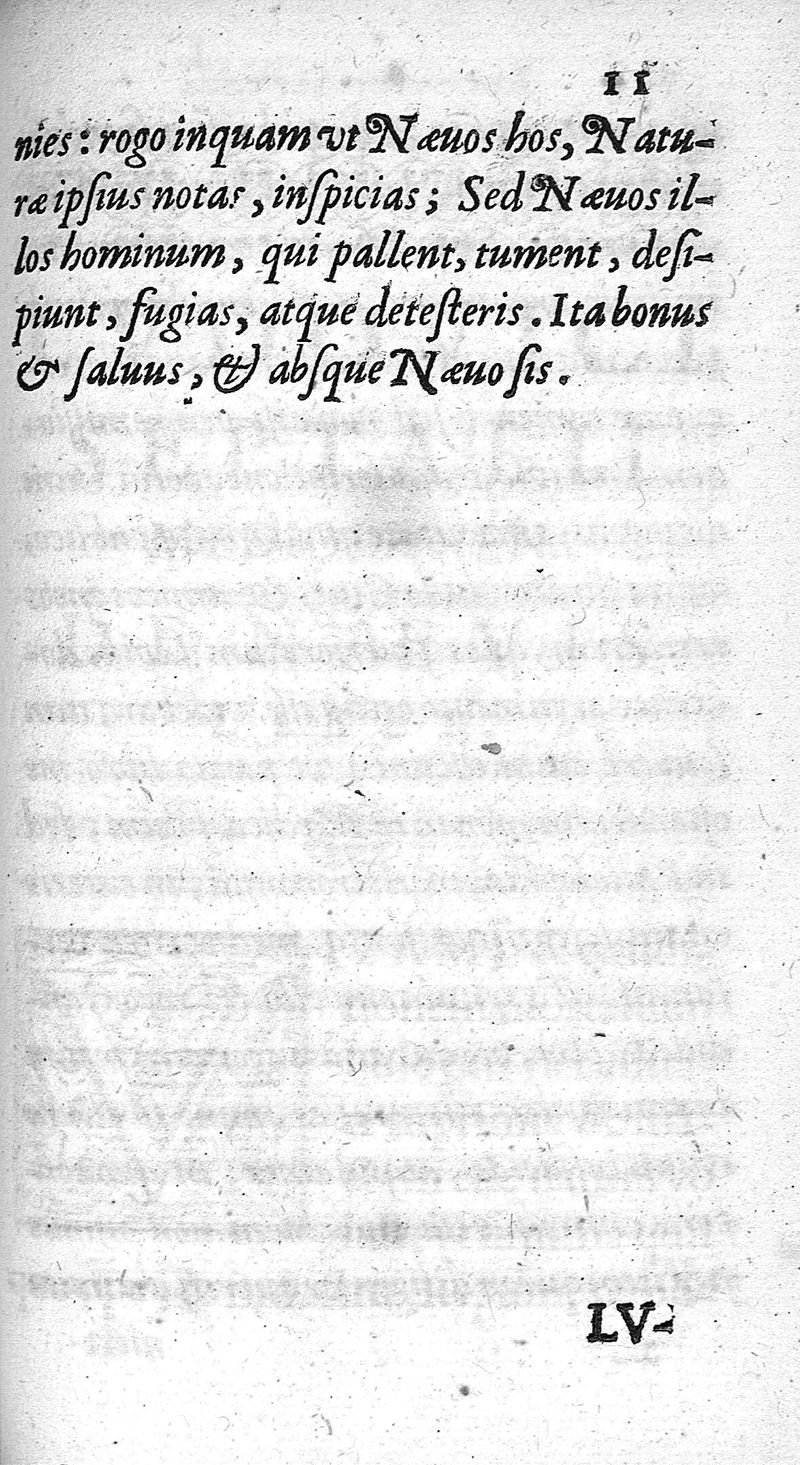 11
nies: rogo inquam vt Næuos hos, Natu-
ræ ipſius notas, inſpicias; Sed Næuos il-
los hominum, qui pallent, tument, deſi-
piunt, fugias, atque deteſteris. Ita bonus
& ſaluus, & abſque Næuo ſis.
LV-